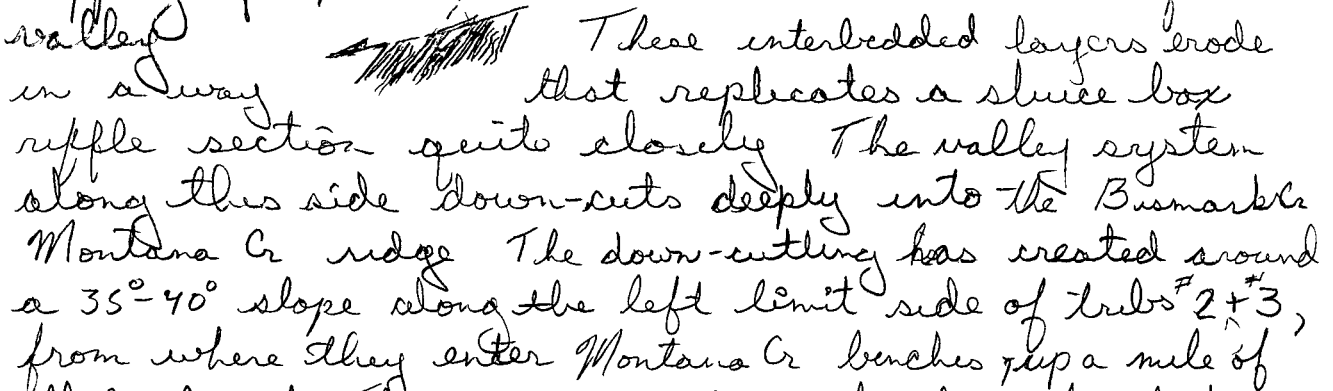 valley These interbedded layers erode
in a way that replicates a sluice box
riffle section quite closely The valley system
along this side down-cuts deeply into the Bismark Cr
Montana Cr ridge The down-cutting has created around
a 35°-40° slope along the left limit side of tribs #2 + #3,
from where they enter Montana Cr benches, up a mile of